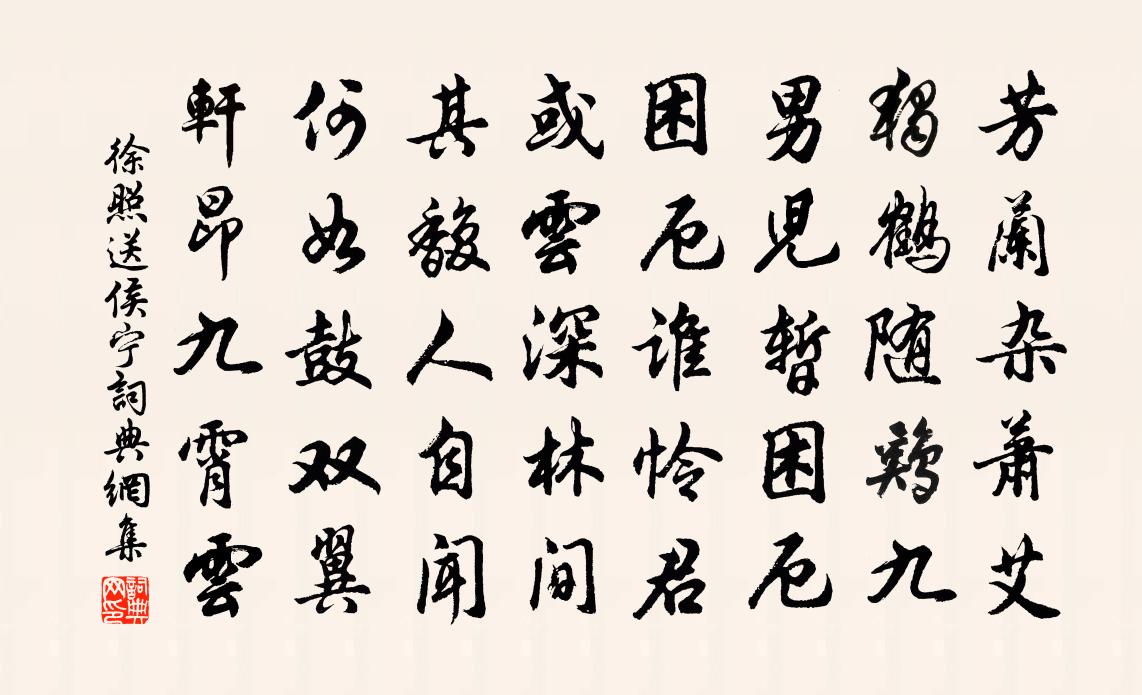 芳蘭杂萧艾
独鶴随鷄九
男児暂困厄
困厄谁怜君
或雲深林间
其馥人自闻
何如鼓双翼
軒昂九霄雲
徐照送侯宁詞典網集
詞典网印